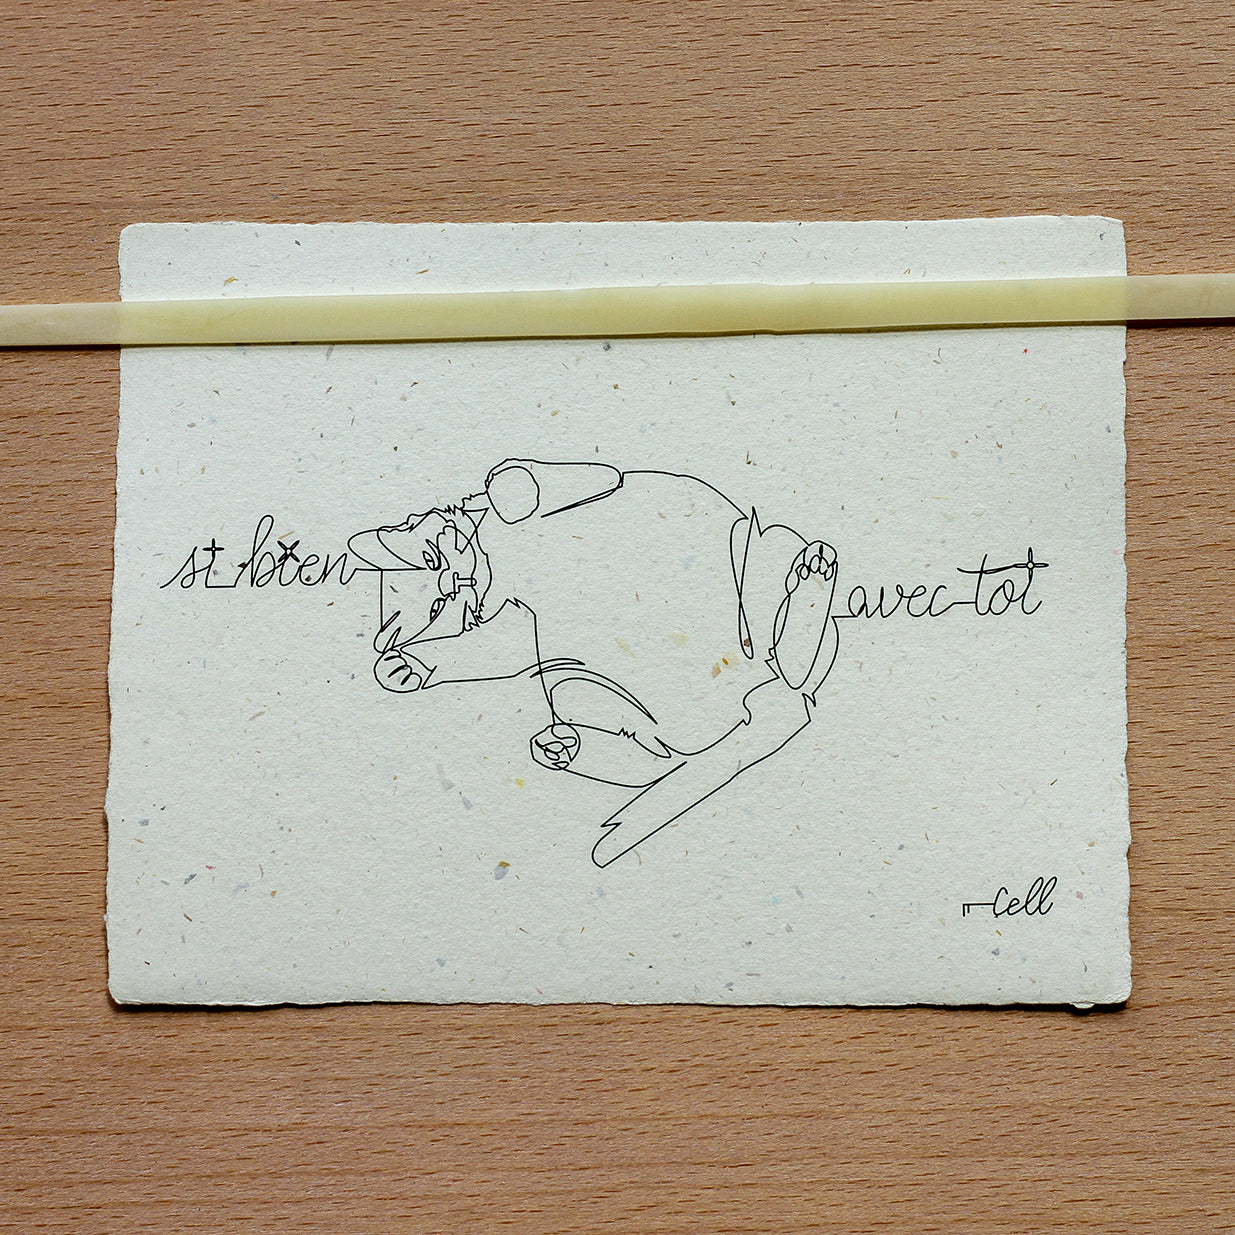 si bien avec toi
cell